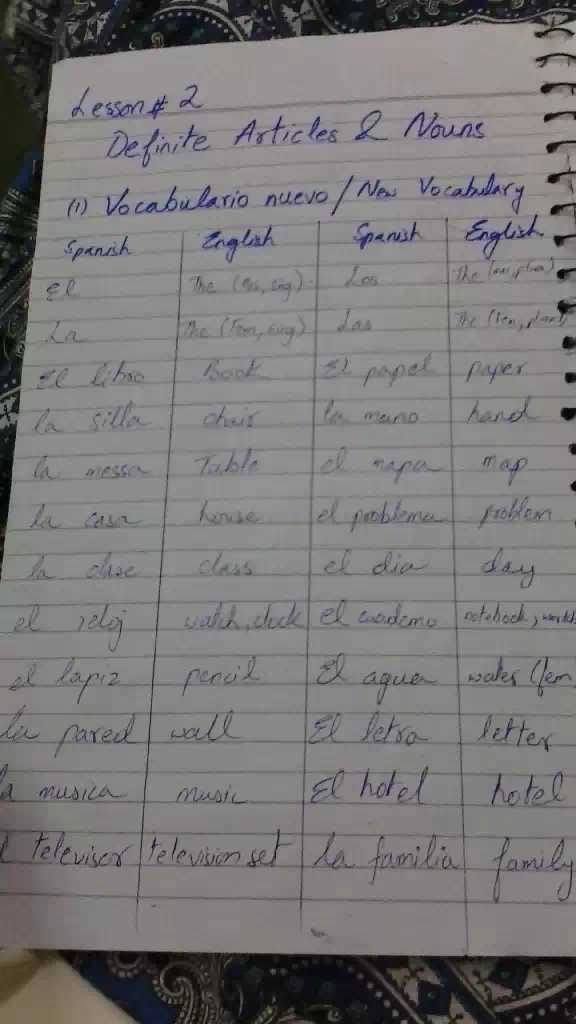 Lesson # 2
Definite Articles & Nouns
(1) Vocabulario nuevo / New Vocabulary
Spanish English Spanish English
El The (Mas, sing) Los The (mas, plural)
La The (Fem, sing) Las The (fem, plural)
El libro Book El papel paper
la silla chair la mano hand
la messa Table el mapa map
la casa house el problema problem
la clase class el dia day
el reloj watch, clock el cuaderno notebook,
el lapiz pencil El agua water (fem
la pared wall El letra letter
la musica music El hotel hotel
televisor television set la familia family